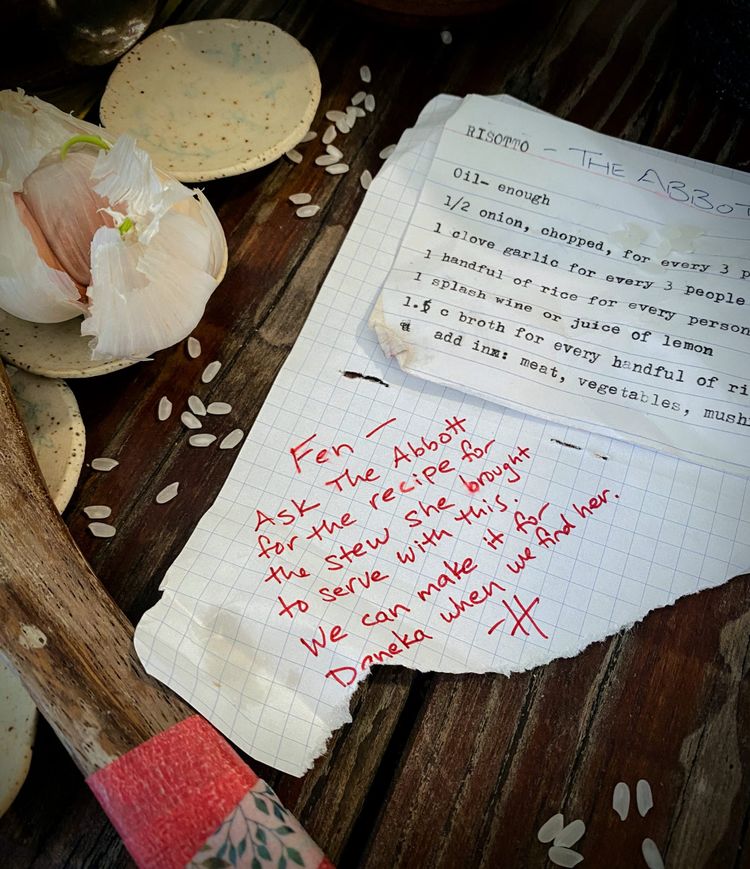 RISOTTO - THE ABBOT
Oil- enough
1/2 onion, chopped, for every 3 p
1 clove garlic for every 3 people
1 handful of rice for every person
1 splash wine or juice of lemon
1.5 c broth for every handful of ri
add inx: meat, vegetables, mush
Fen -
Ask The Abbott
for the recipe for
the stew she brought
to serve with this.
We can make it for
Daneka when we find her.
-H